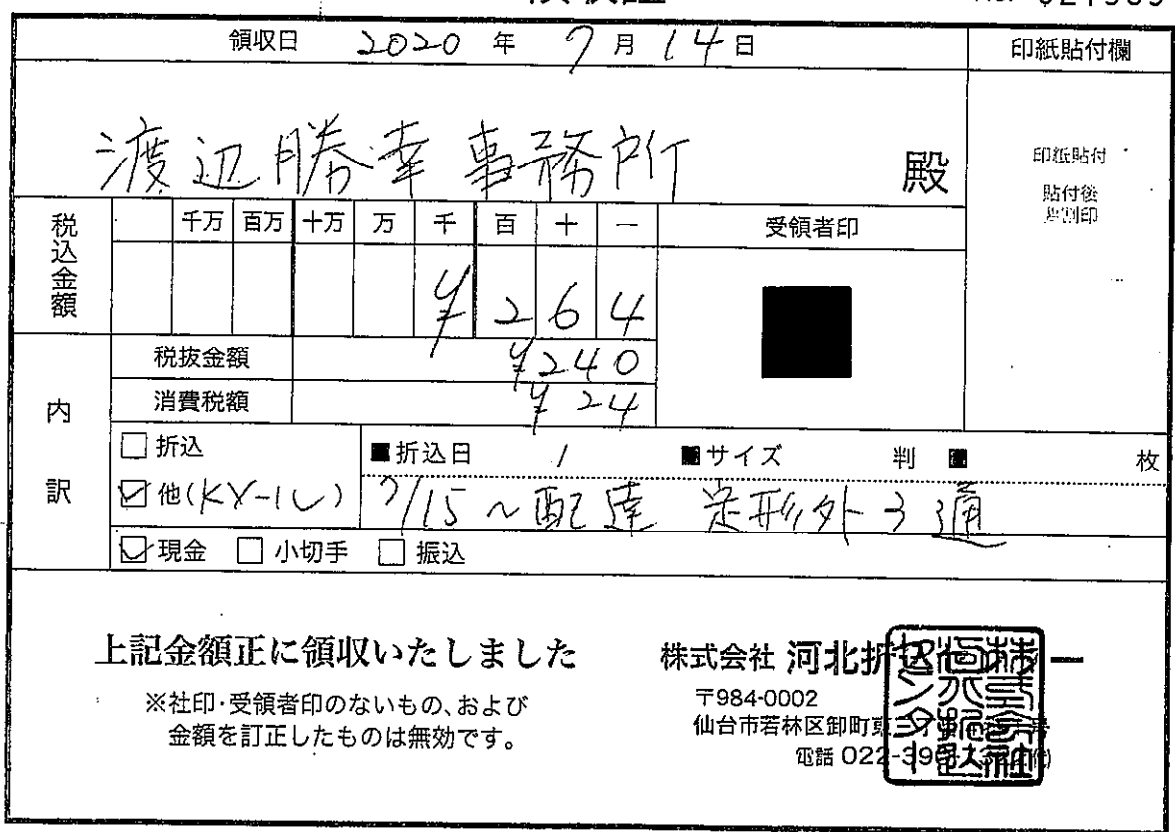 領収日 2020 年 7 月 14 日
印紙貼付欄
渡辺勝幸事務所 殿
印紙貼付
貼付後
税込金額
千万 百万 十万 万 千 百 十 一
受領者印
¥264
内訳
税抜金額 ¥240
消費税額 ¥24
□ 折込
■折込日 / ■サイズ 判 ■ 枚
☑ 他(KY-ル) 7/15~配達 定形外3通
☑ 現金 □ 小切手 □ 振込
上記金額正に領収いたしました
※社印・受領者印のないもの、および
金額を訂正したものは無効です。
株式会社 河北折込センター
〒984-0002
仙台市若林区卸町東
電話 022-39